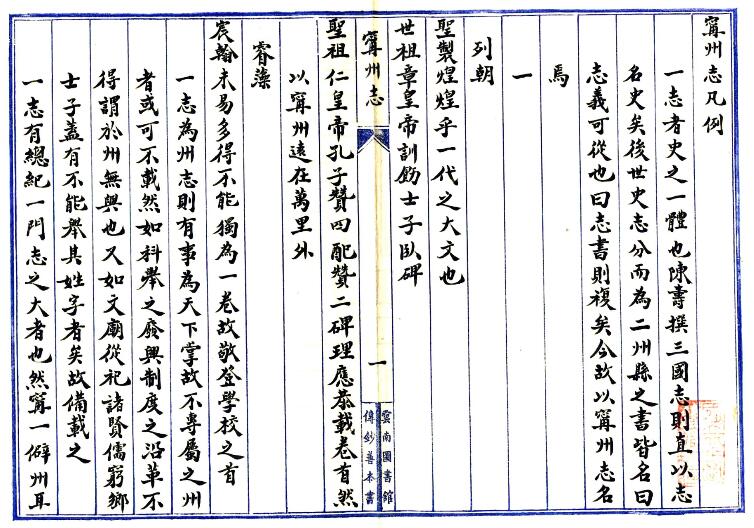 寗州志凡例
一志者史之一體也陳壽撰三國志則直以志
名史矣後世史志分而為二州縣之書皆名曰
志義可從也曰志書則複矣今故以寗州志名
焉
一
列朝
聖製煌煌乎一代之大文也
世祖章皇帝訓飭士子臥碑
寗州志
一
雲南圖書館
傳鈔善本書
聖祖仁皇帝孔子贊四配贊二碑理應恭載卷首然
以寗州遠在萬里外
睿藻
宸翰未易多得不能獨為一卷故敬登學校之首
一志為州志則有事為天下掌故不專屬之州
者或可不載然如科舉之廢興制度之沿革不
得謂於州無與也又如文廟從祀諸賢儒窮鄉
士子蓋有不能舉其姓字者矣故備載之
一志有總紀一門志之大者也然寗一僻州耳